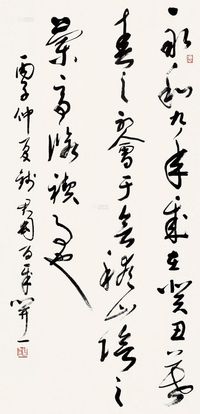 永和九年岁在癸丑暮
春之初会于会稽山阴之
兰亭修禊事也
丙子仲夏